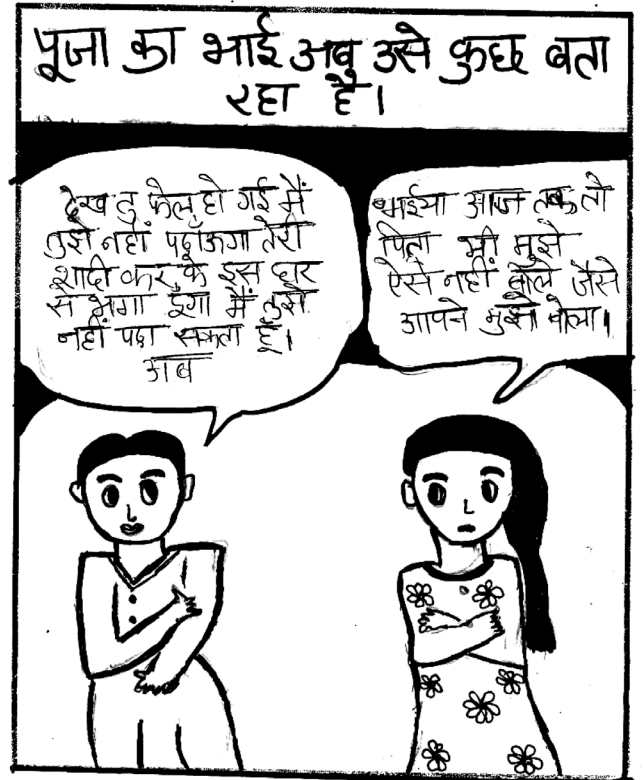 पूजा का भाई अब उसे कुछ बता
रहा है।
देख तु फेल हो गई मैं
तुझे नहीं पढ़ाऊगा तेरी
शादी कर के इस घर
से भगा दुगा मैं तुझे
नहीं पढा सकता हूँ।
अब
भाईया आज तक तो
पिता भी मुझे
ऐसे नहीं बोले जैसे
आपने मुझे बोला।